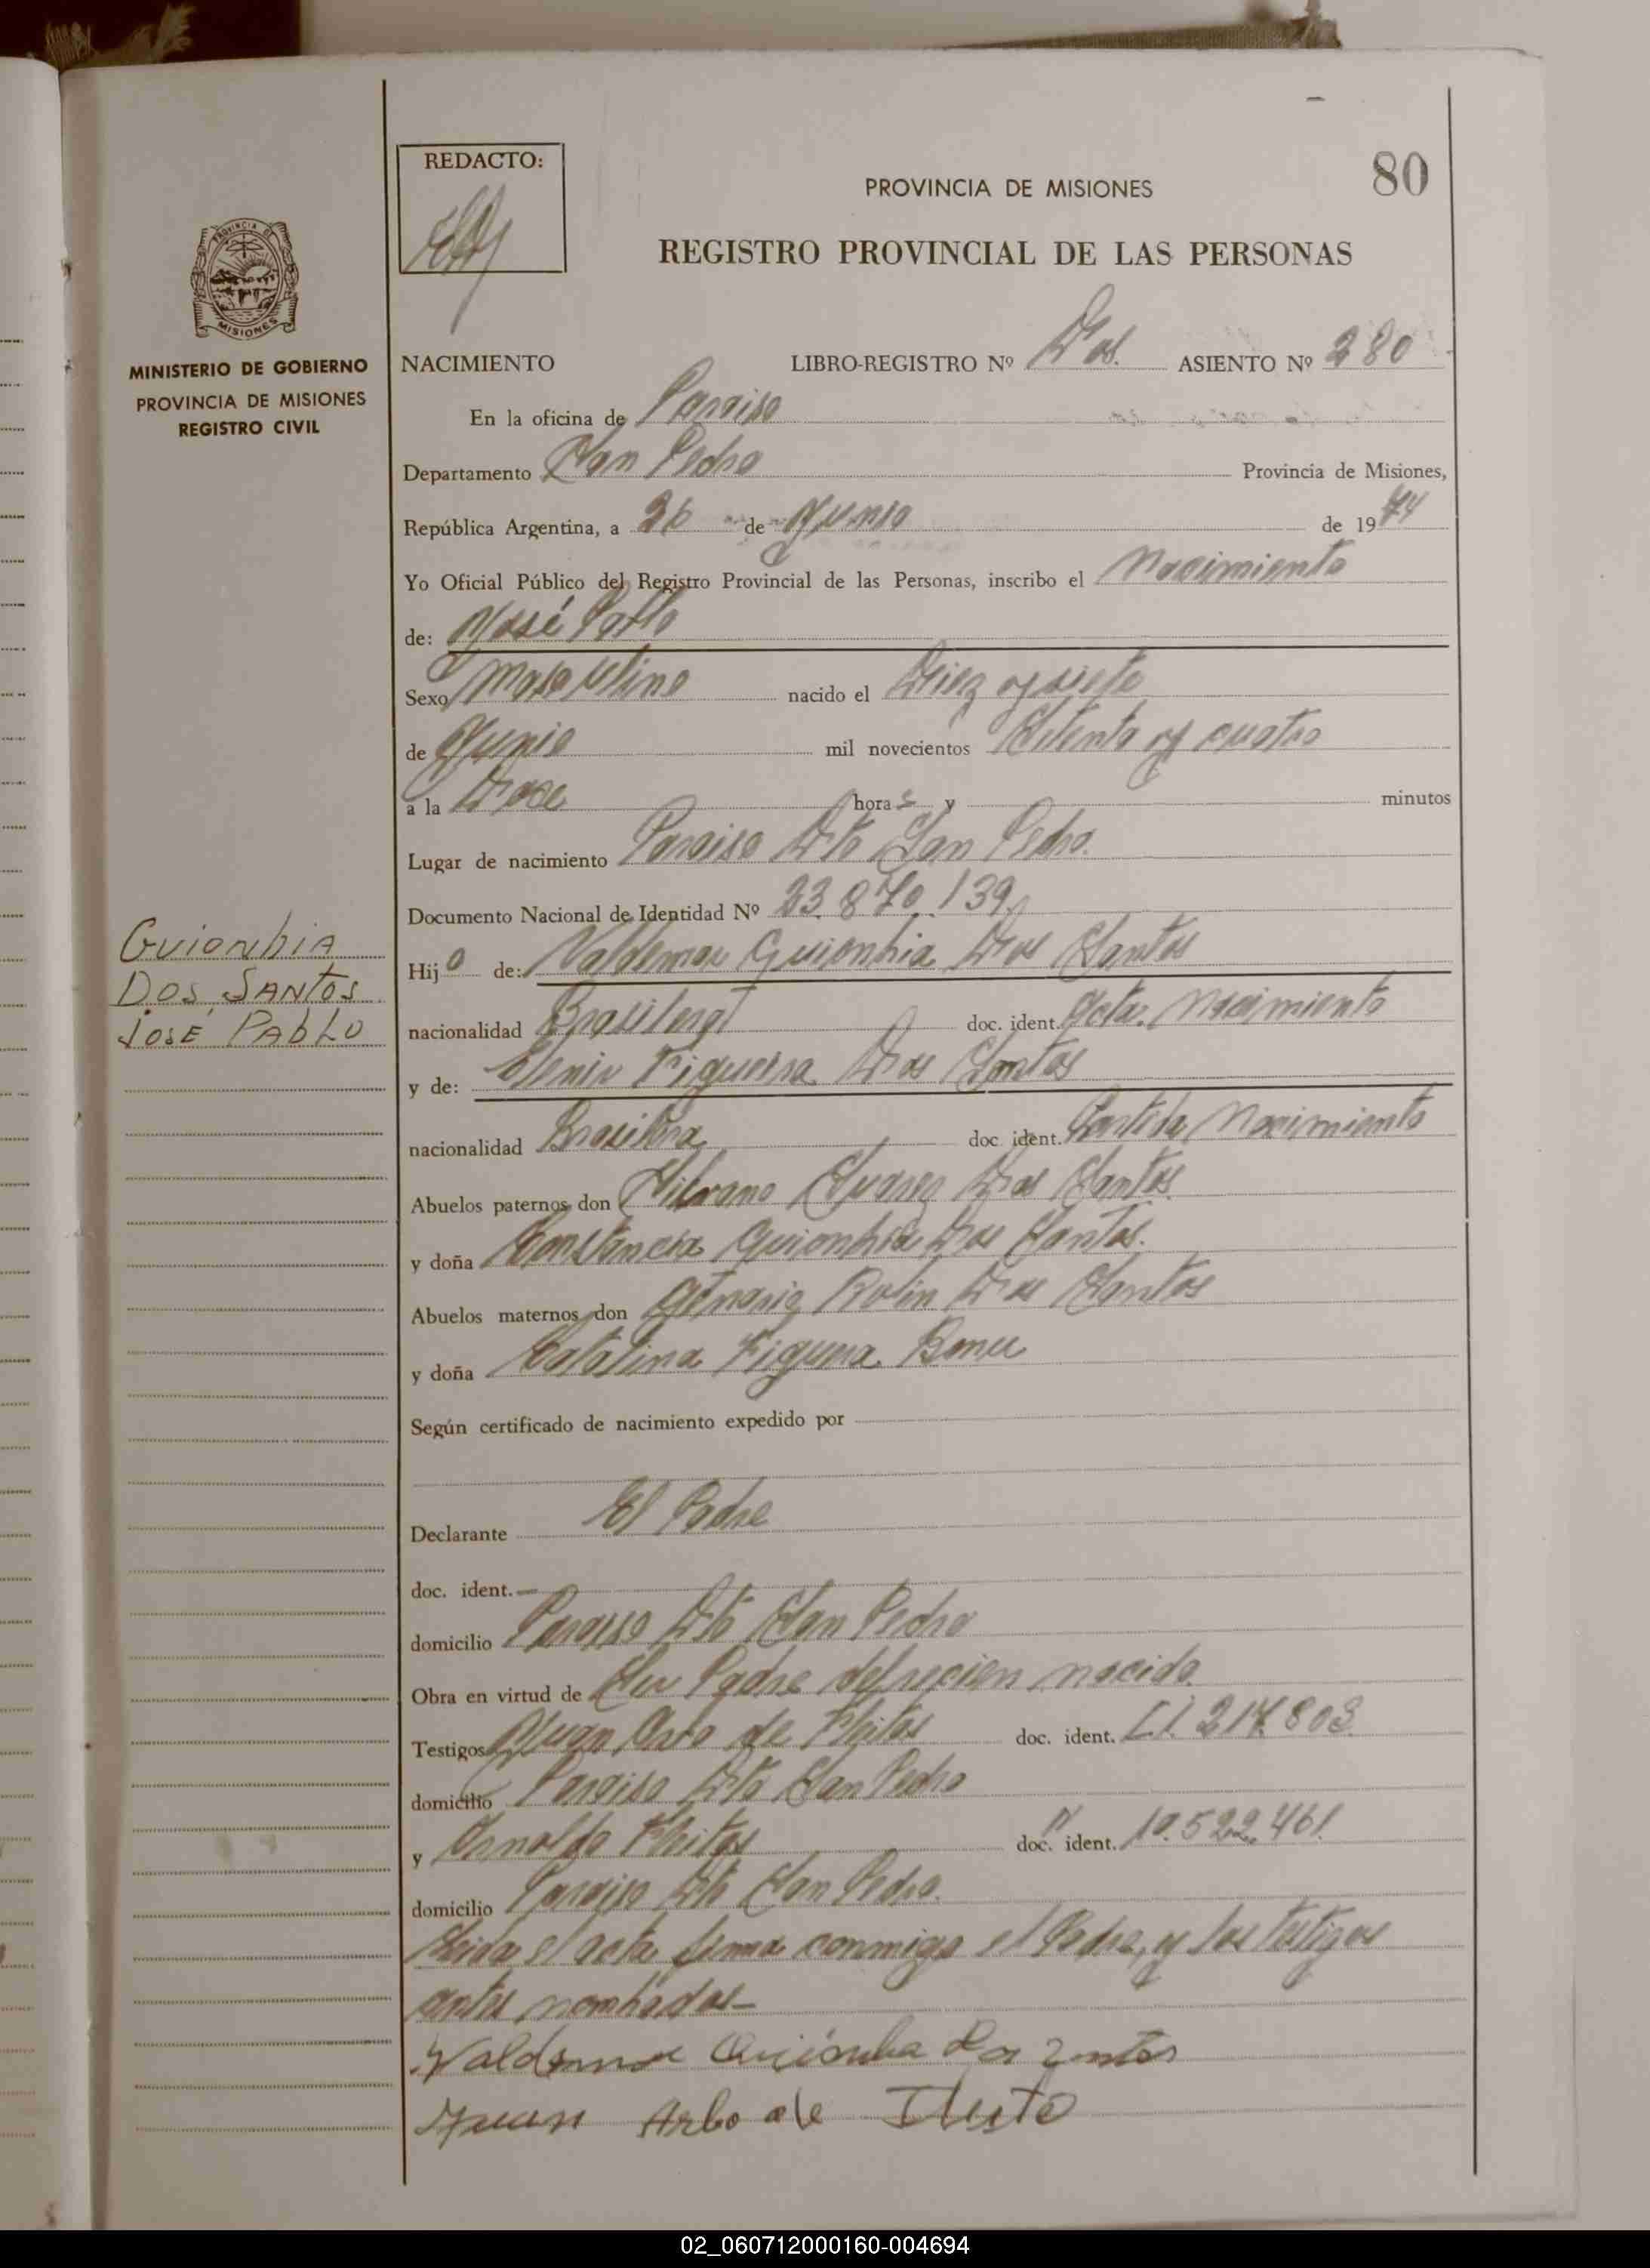 REDACTO:
80
PROVINCIA DE MISIONES
REGISTRO PROVINCIAL DE LAS PERSONAS
PROVINCIA DE
MISIONES
MINISTERIO DE GOBIERNO
PROVINCIA DE MISIONES
REGISTRO CIVIL
NACIMIENTO LIBRO-REGISTRO Nº Dos. ASIENTO Nº 280
En la oficina de Paraiso
Departamento San Pedro Provincia de Misiones,
República Argentina, a 26 de Junio de 1974
Yo Oficial Público del Registro Provincial de las Personas, inscribo el Nacimiento
de: José Pablo
Sexo Masculino nacido el Diez y siete
de Junio mil novecientos Setenta y cuatro
a la Doce horas y minutos
Lugar de nacimiento Paraiso Dto San Pedro.
Documento Nacional de Identidad Nº 23.870.139
Guionhia
Dos Santos
José Pablo
Hijo de: Valdemar Guionhia Dos Santos
nacionalidad doc. ident. Acta. Nacimiento
y de: Figueira Dos Santos
nacionalidad Brasilera doc. ident. Partida Nacimiento
Abuelos paternos don Dos Santos.
y doña Constancia Guionhia Dos Santos.
Abuelos maternos don Dos Santos
y doña Catalina
Según certificado de nacimiento expedido por
Declarante El Padre
doc. ident. —
domicilio Paraiso Dto San Pedro
Obra en virtud de Ser Padre del recien nacido.
Testigos Juan de doc. ident. 217.803
domicilio Paraiso Dto San Pedro
y Arnoldo doc. ident. 10.522.461
domicilio Paraiso Dto San Pedro.
Leida el acta firma conmigo el Padre, y los testigos
antes nombrados—
Dos
Juan Arbo de
02_060712000160-004694